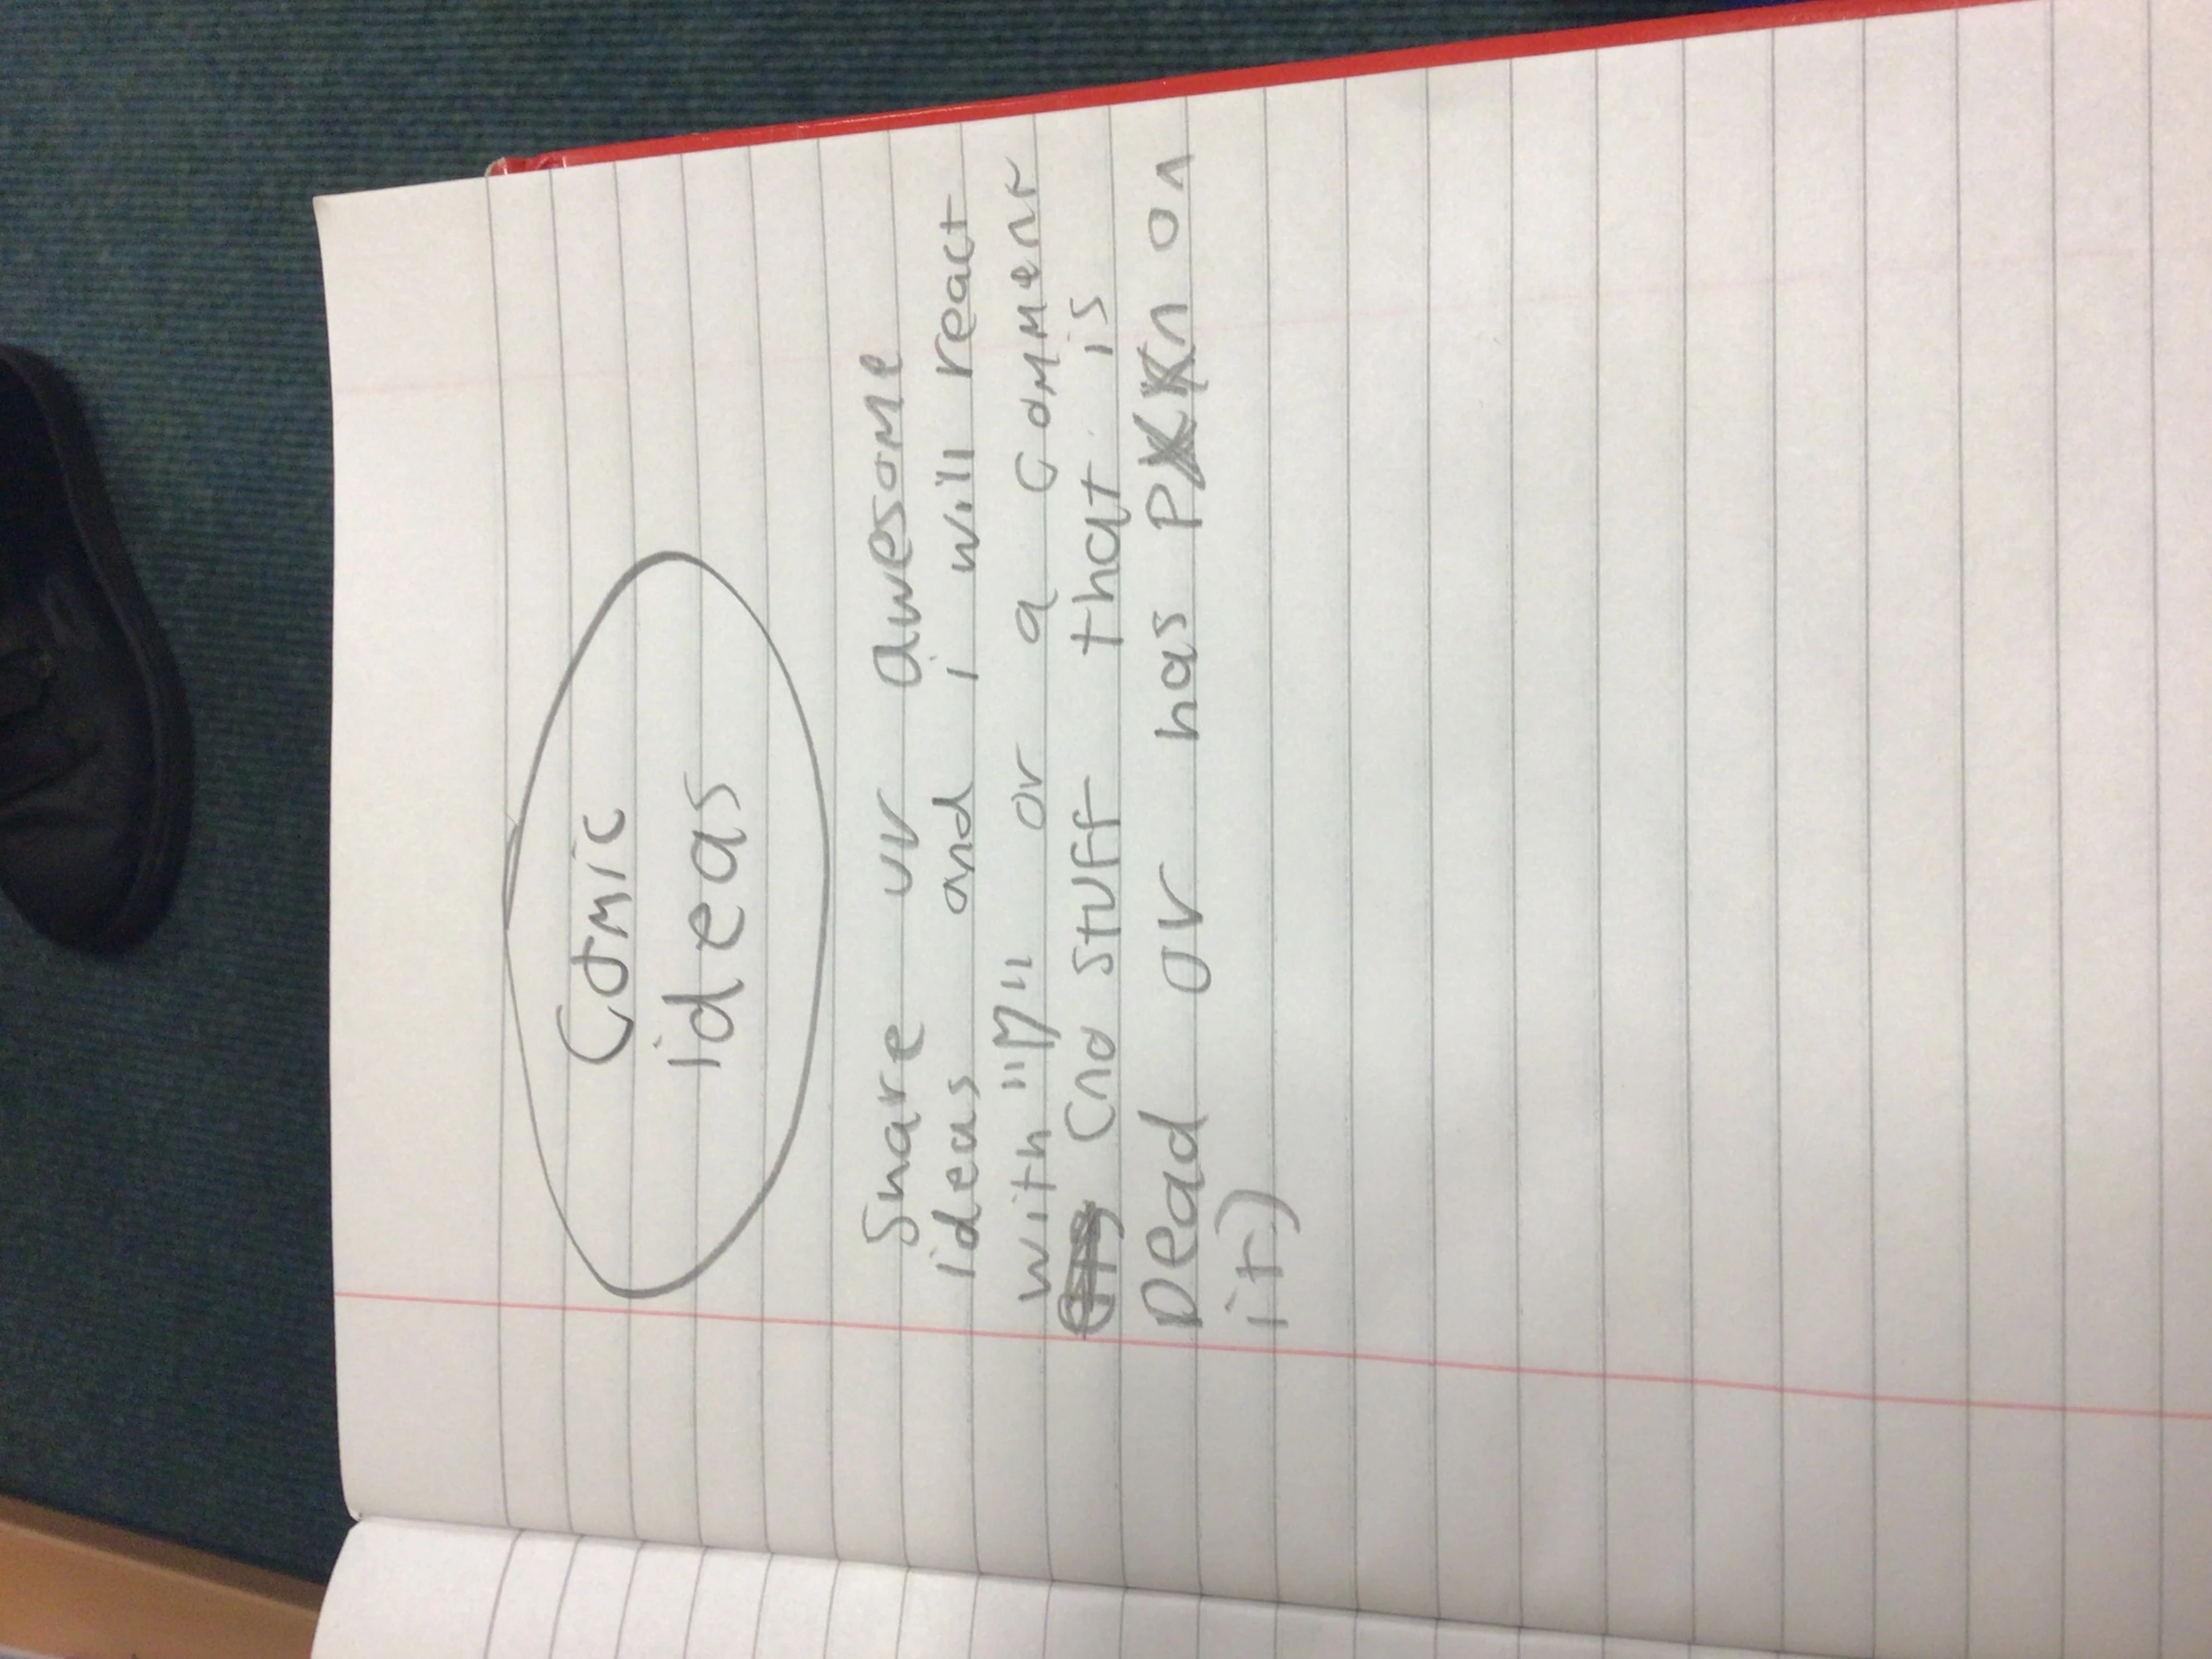 Comic
ideas
Share ur awesome
ideas and i will react
with "M" or a comment
(no stuff that is
Dead or has on
it)